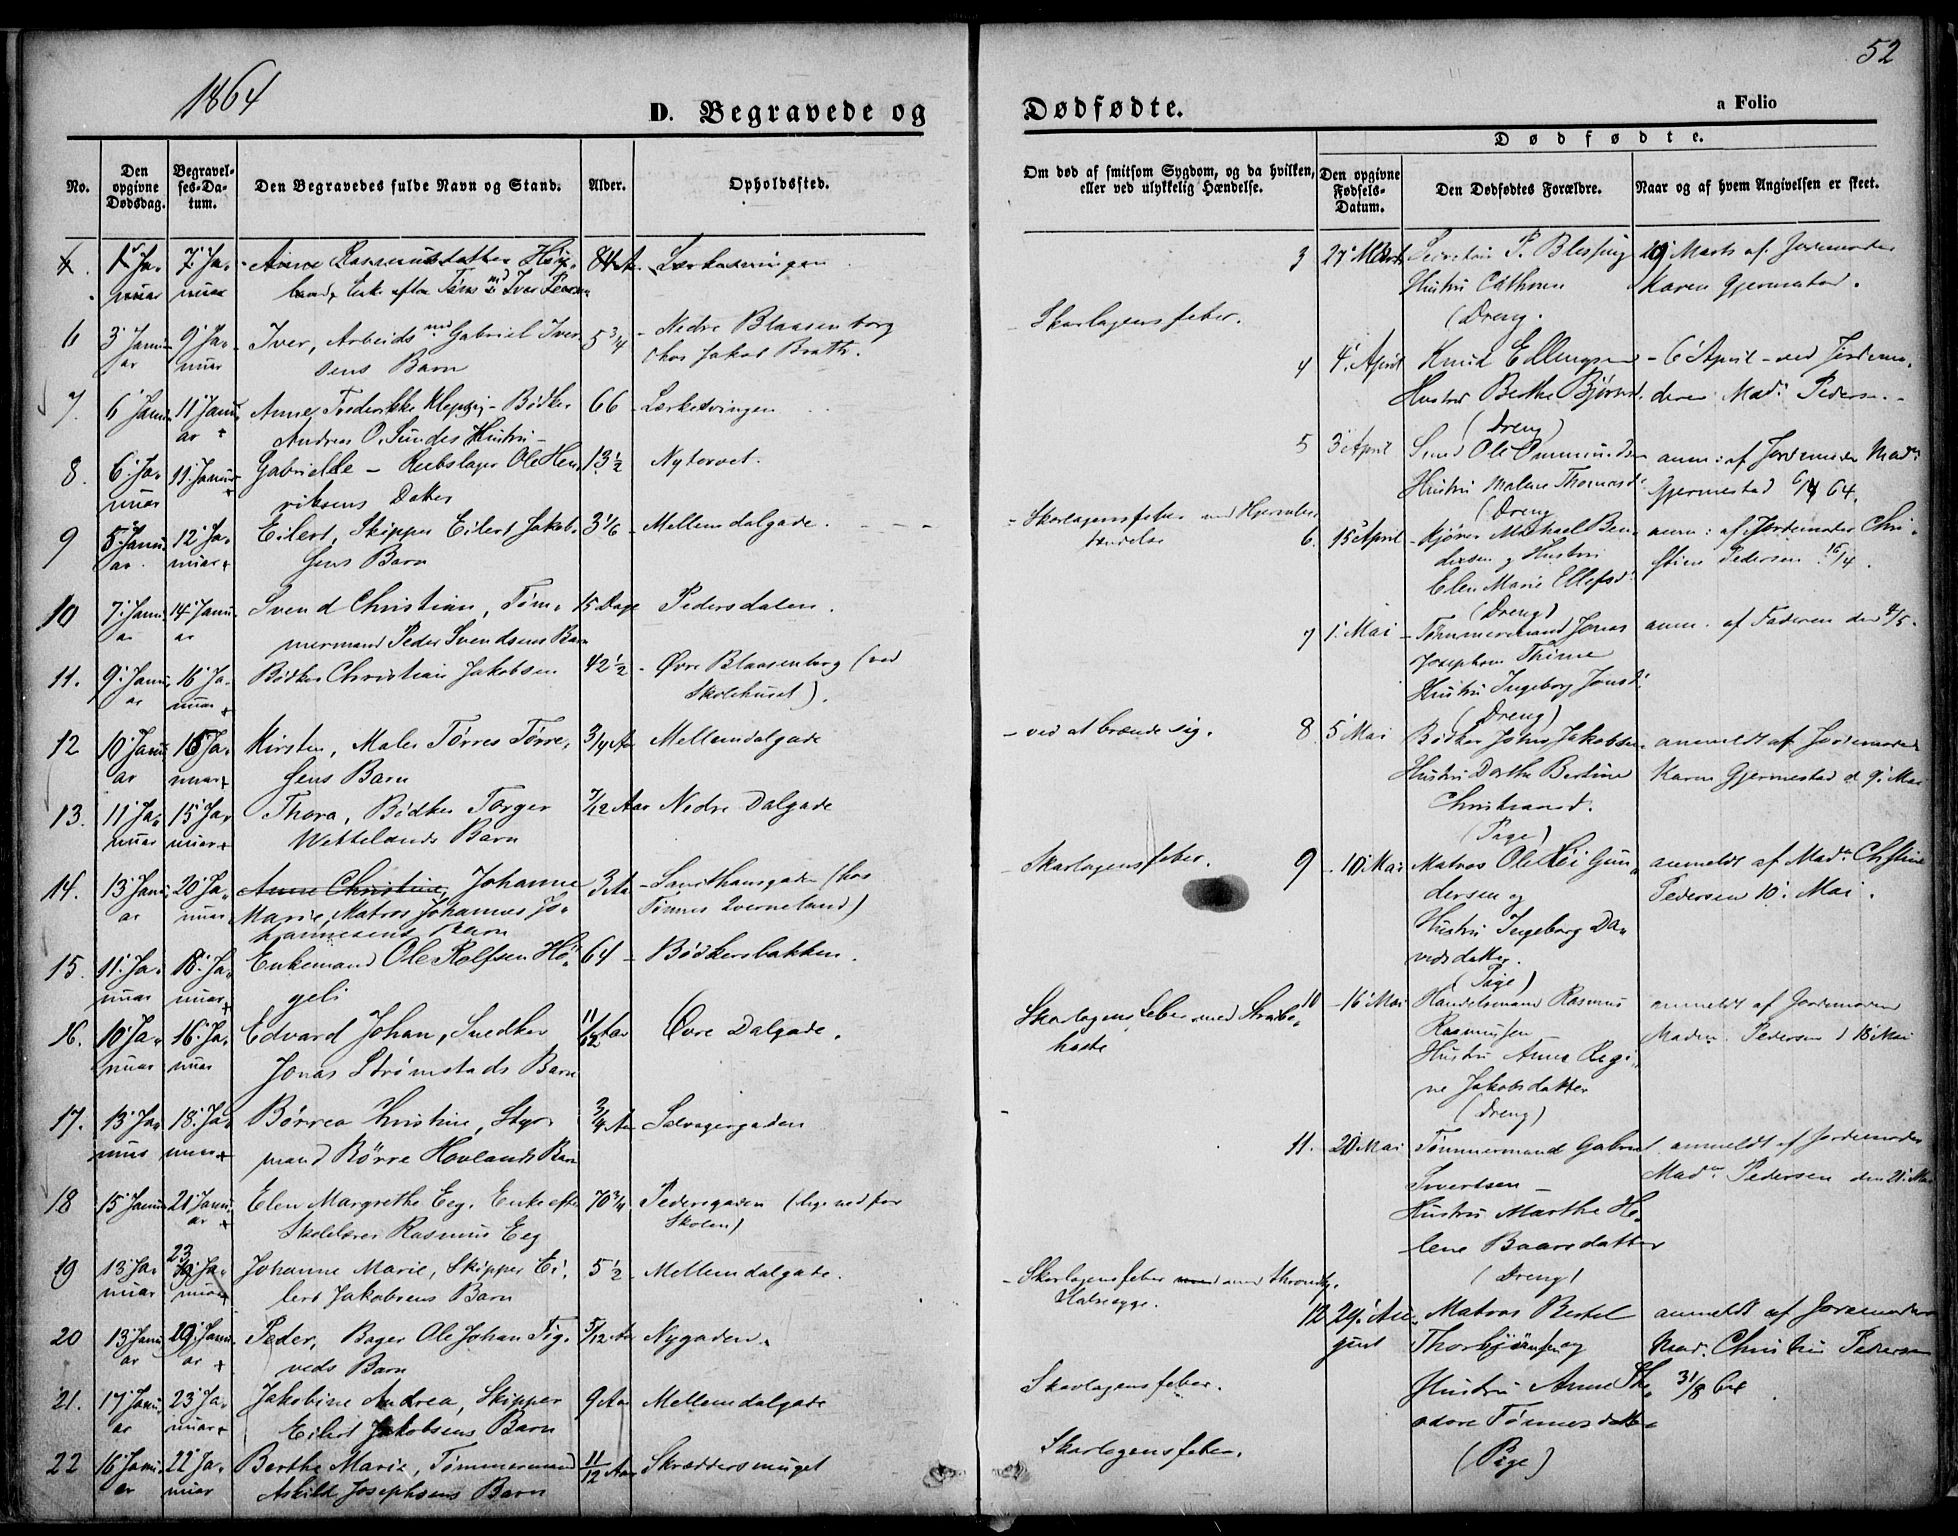 1864
52
D. Begravede og
Dødfødte.
a Folio
No.
Den opgivne Dødsdag.
Begravelses-Datum.
Den Begravedes fulde Navn og Stand.
Alder.
Opholdssted.
Om død af smitsom Sygdom, og da hvilken,
eller ved ulykkelig Hændelse.
Dødfødte.
Den opgivne Fødsels-Datum.
Den Dødfødtes Forældre.
Naar og af hvem Angivelsen er skeet.
7' Januar
Enke efter
Iver
84 A.
6
3' Januar
9' Januar
Iver, Arbeidsmd Gabriel Iver
sens Barn
5 3/4
Nedre Blaasenborg
(hos Jakob Bratt.
Skarlagensfeber.
7.
6' Januar
11' Januar +
Anne Frederikke Kleppig - Bødker
Andreas O. Sundes Hustru -
66
Lærkesvingen
8.
6' Januar
11. Januar
Gabrielle - Rebslager Ole Hen
riksens Datter
13 1/2
Nytorvet.
9
5' Januar
12' Januar +
Eilert, Skipper Eilert Jakob-
sens Barn
3 1/6
Mellemdalgade.
Skarlagensfeber med
10
7' Januar
14' Januar
Svend Christian, Tøm-
mermand Peder Svendsens Barn
15 Dage
Pedersdalen.
11.
9' Januar
16' Januar +
Bødker Christian Jakobsen
42 1/2
Øvre Blaasenborg (ved
Skolehuset).
12
10' Januar
16 Januar +
Kirsten, Maler Tørres Tørre-
sens Barn
3/4 Aar
Mellemdalgade
- ved at brænde sig.
13.
11' Januar
15' Januar +
Thora, Bødker Torger
Wettelands Barn
7/12 Aar
Nedre Dalgade
14.
13' Januar
20' Januar
Anne Christine, Johanne
Marie Matros Johannes Jo-
hannesens Barn
3 Aa
Sancthansgaden (hos
Tønnes Qverneland)
Skarlagensfeber.
15.
11' Januar
18' Januar +
Enkemand Ole Rolfsen Hø-
geli
64
Bødkersbakken.
16.
10' Januar
16' Januar
Edvard Johan, Snedker
Jonas Strømstads Barn
11/12 Aar
Øvre Dalgade.
Skarlagensfeber med Strube-
hoste
17.
13' Januar
18' Januar +
Børrea Kristine, Styr-
mand Børre Hovlands Barn
3/4 Aar
Salvagergaden
18
15' Januar
21' Januar +
Elen Margrethe Eeg. Enke efter
Skolelærer Rasmus Eeg
70 3/4
Pedersgaden (lige nedfor
Skolen)
19
13' Januar
23 Januar +
Johanne Marie, Skipper Ei-
lert Jakobsens Barn
5 1/2
Mellemdalgade.
Skarlagensfeber
Halssyge.
20
13' Januar
Januar +
Peder, Bager Ole Johan Tig-
veds Barn
5/12 Aar
Nygaden.
21.
17' Januar
23' Januar +
Jakobine Andrea, Skipper
Eilert Jakobsens Barn
9 Aar
Mellemdalgade
Skarlagensfeber.
22
16' Januar
22' Januar
Berthe Marie, Tømmermand
Askild Josephsens Barn
11/12 Aar
Skræddersmuget
Skarlagensfeber.
3
27' Marts
P. Blessing
Hustru Cathrine
(Dreng.
Marts af Jordemoder
Karen Gjermestad.
4
4' April
Knud Ellingsen
Hustru Berthe Bjørnsd.
(Dreng)
6' April - ved Jordemo-
deren Mad. Pedersen -
5
3' April
Ole Ommundsen
Hustru Malene Thomasd.
(Dreng
anm: af Jordemoder Mad.
Gjermestad 6/4 64.
6.
15' April
Michael Ben-
dixsen og Hustru
Elen Marie Ellefsd.
(Dreng)
anm: af Jordemoder Chri-
stine Pedersen 16/4.
7
1' Mai
Tømmermand Jonas
Josephsen Thime
Hustru Ingeborg Jonsd.
(Dreng)
anm. af Faderen den 4/5.
8.
5' Mai
Bødker John Jakobsen
Hustru Dorthe Bertine
Christiansd.
(Pige)
anmeldt af Jordemoder
Karen Gjermestad d. 9' Mai
9
10' Mai
Matros Ole Gun-
dersen og
Hustru Ingeborg Da-
vidsdatter.
(Pige)
anmeldt af Mad. Christine
Pedersen 10' Mai.
10
16' Mai
Handelsmand Rasmus
Rasmussen
Hustru Anna Regi-
ne Jakobsdatter
(Dreng)
anmeldt af Jordemoder
Madm. Pedersen d 18' Mai
11.
20' Mai
Tømmermand Gabriel
Sivertsen -
Hustru Marthe He-
lene Baarsdatter
(Dreng)
anmeldt af Jordemoder
Madm Pedersen den 21' Mai
12
29' August
Matros Bertel
Thorbjørnsen og
Hustru Anne The-
odore Tønnesdatter
(Pige)
anmeldt af Jordemoder
Mad. Christine Pedersen
31/8 64